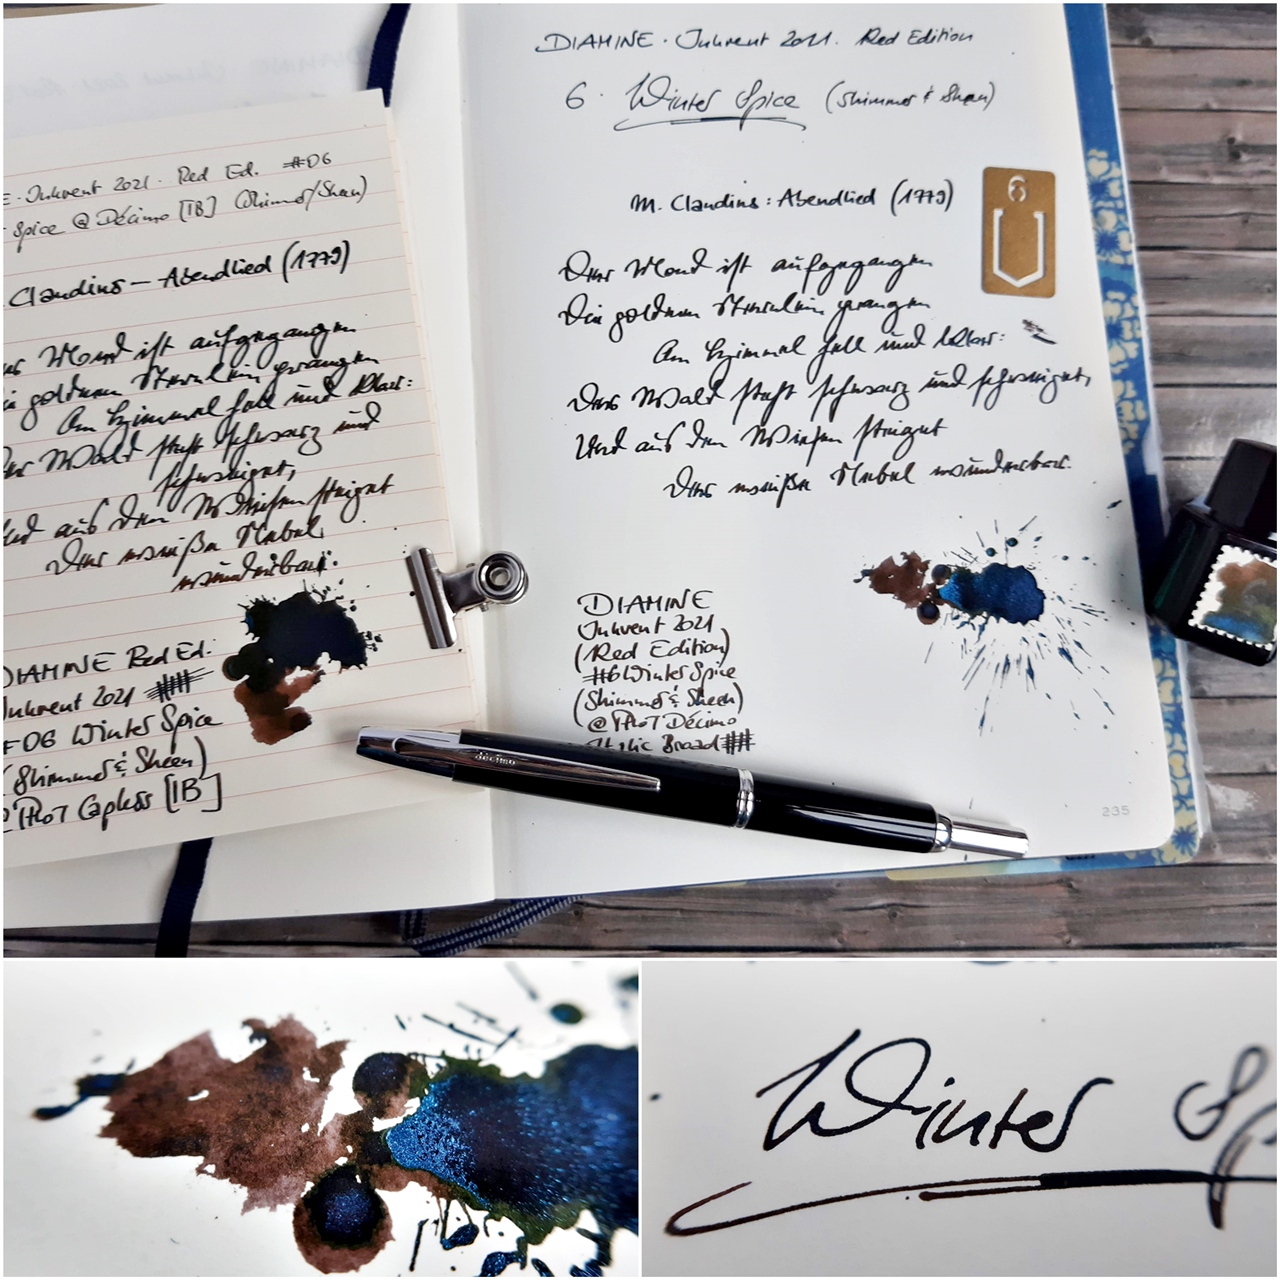 E · Inkvent 2021 · Red Ed. #06
Spice @ Décimo [IB] (Shimmer/Sheen)
Claudius – Abendlied (1779)
Mond ist aufgegangen
goldnen Sternlein prangen
Am Himmel hell und klar:
Wald steht schwarz und
schweiget,
aus den Wiesen steiget
Der weiße Nebel
wunderbar.
DIAMINE Red Ed.
Inkvent 2021
#06 Winter Spice
(Shimmer & Sheen)
@ PILOT Capless [IB]
DIAMINE · Inkvent 2021 · Red Edition
6 · Winter Spice (Shimmer & Sheen)
6
M. Claudius: Abendlied (1779)
Der Mond ist aufgegangen
Die goldnen Sternlein prangen
Am Himmel hell und klar:
Der Wald steht schwarz und schweiget,
Und aus den Wiesen steiget
Der weiße Nebel wunderbar.
DIAMINE
Inkvent 2021
(Red Edition)
#6 Winter Spice
(Shimmer & Sheen)
@ PILOT Décimo
Italic Broad
décimo
235
Winter